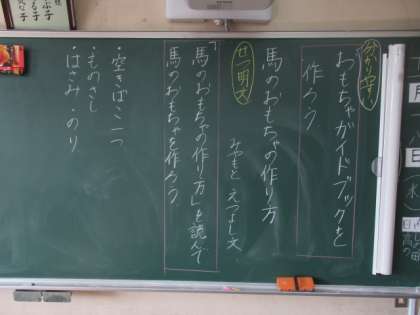 分かりやすい
おもちゃガイドブックを
作ろう
馬のおもちゃの作り方
みやもと えつよし 文
せつ明文
「馬のおもちゃの作り方」を読んで
馬のおもちゃを作ろう
・空きばこ一つ
・ものさし
・はさみ・のり
月
日